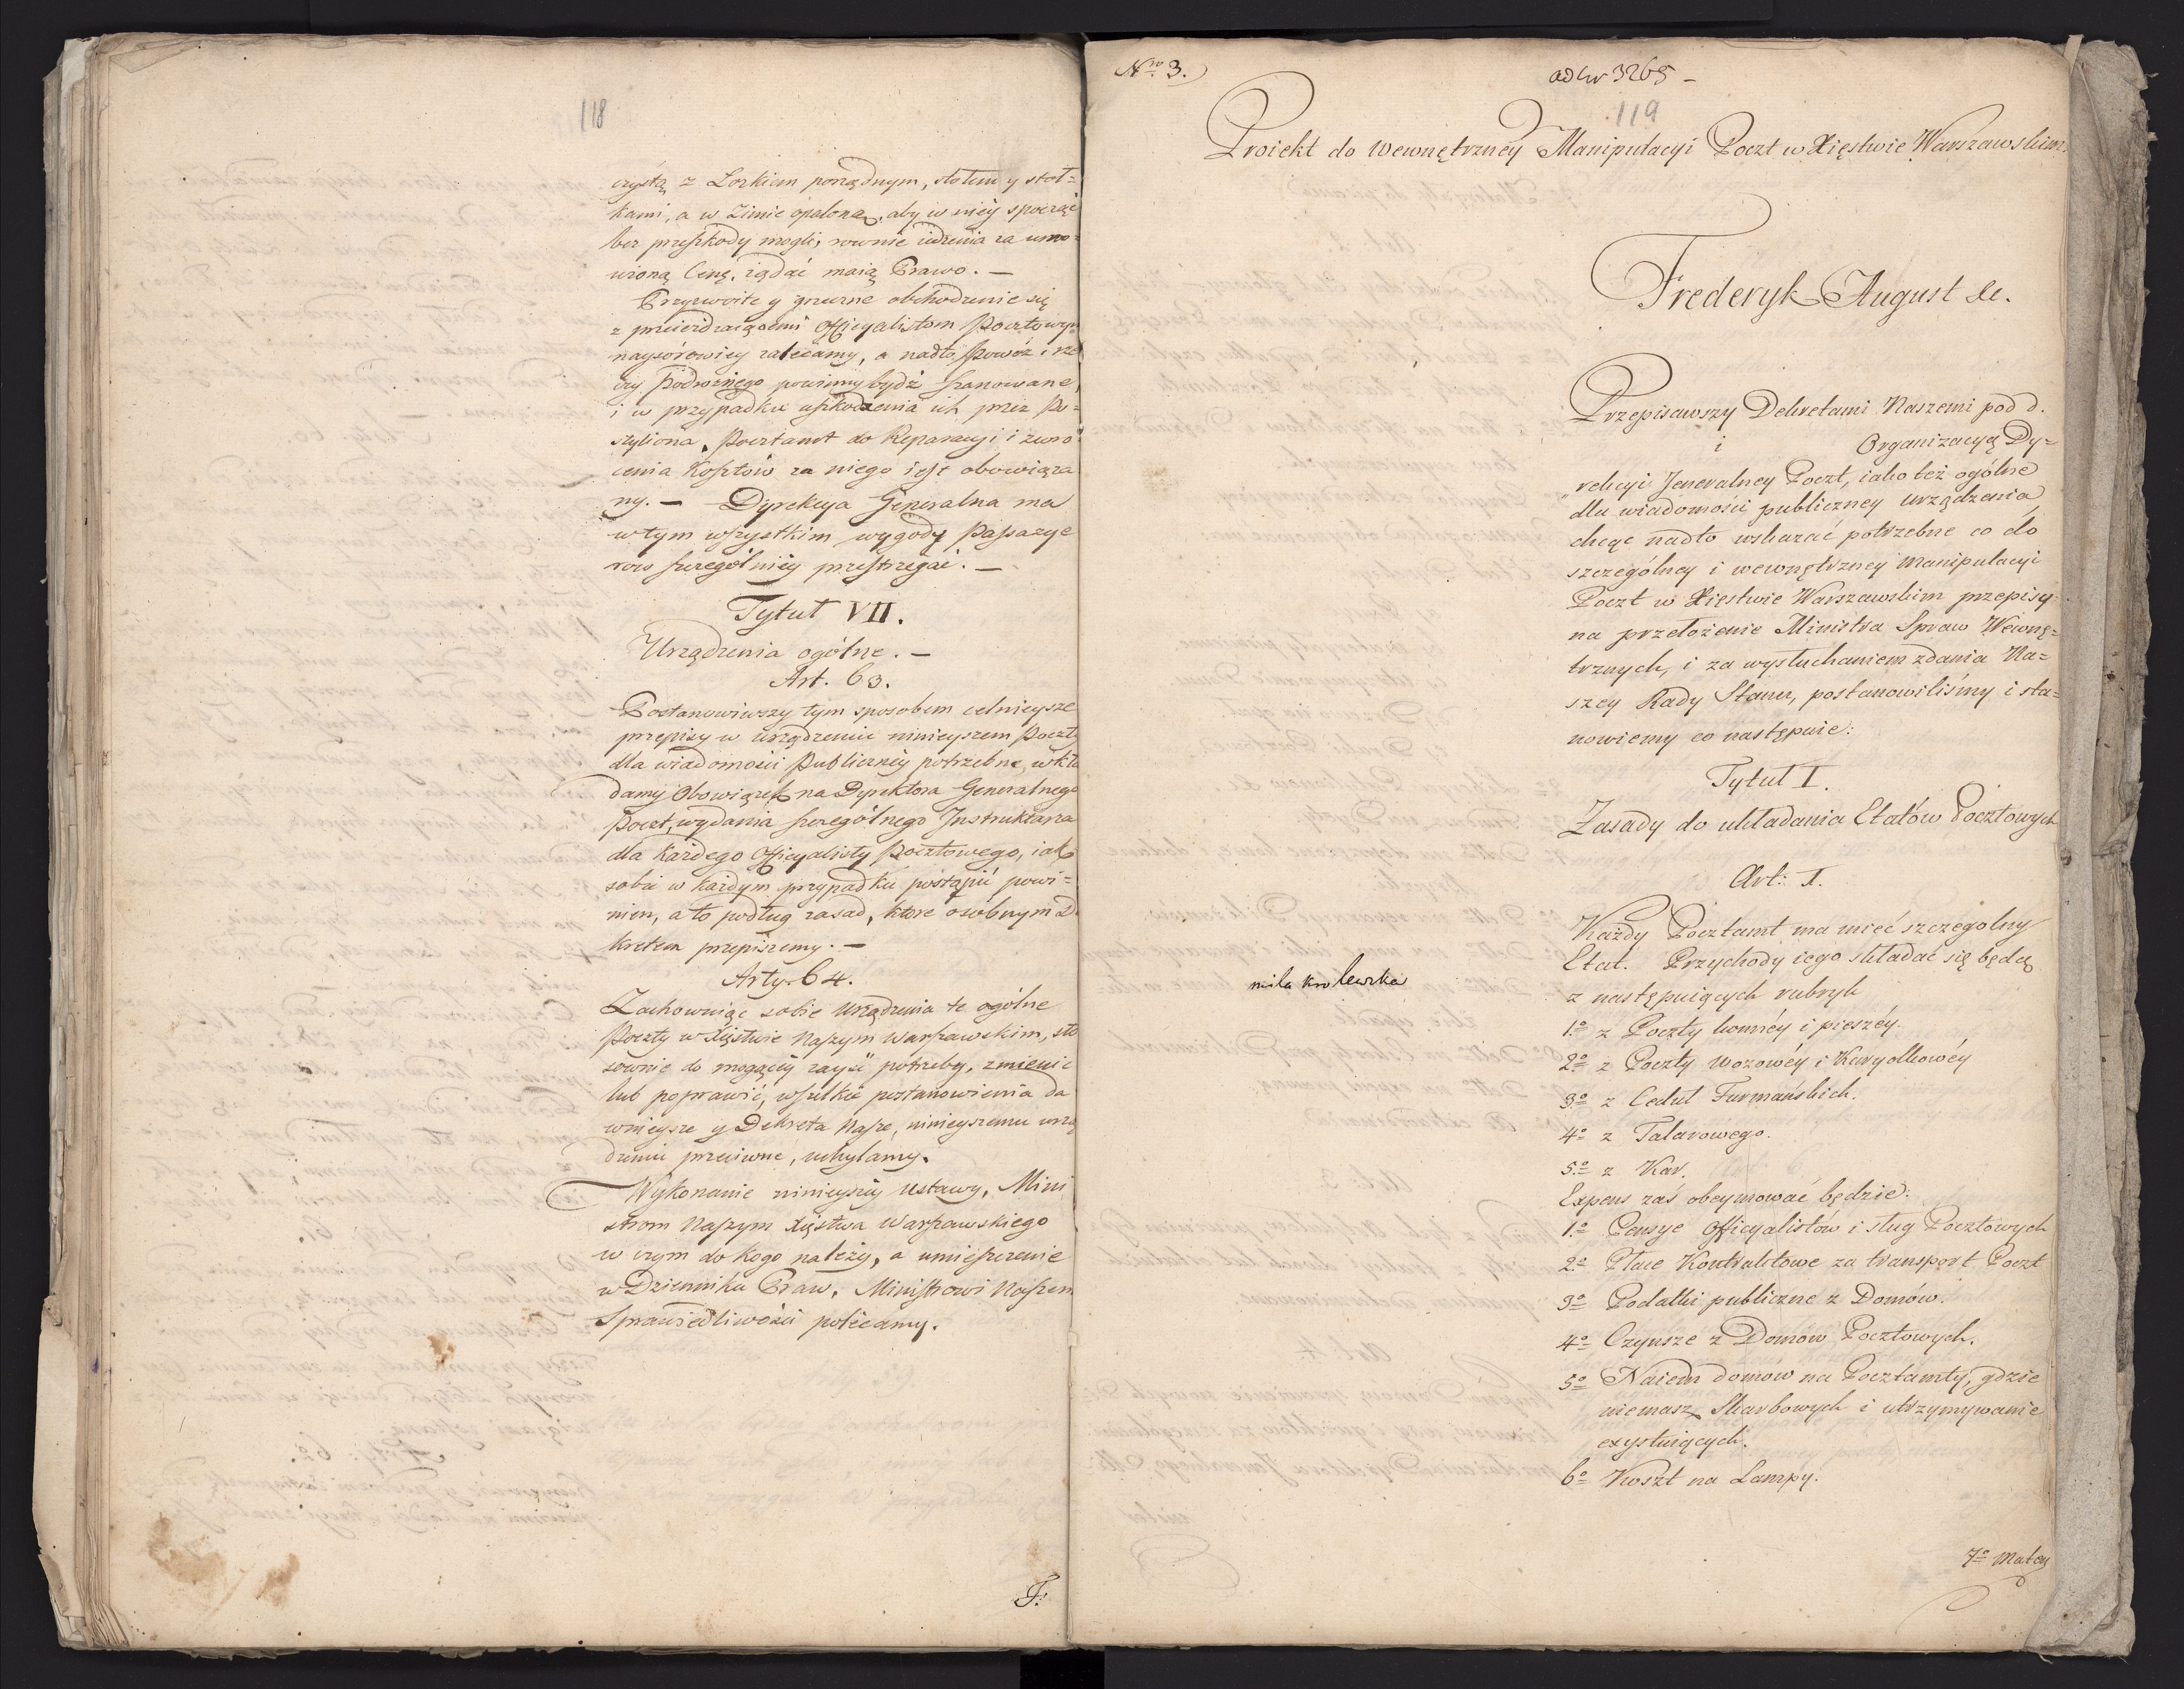 118
czystą z Łozkiem porządnym, stołem y stoł=
kami, a w Zimie opaloną, aby w niéy spocząć
bez przeszkody mogli, rownie iedzenia za umo=
wioną Cenę, żądać maią Prawo. —
Przyzwoite y grzeczne obchodzenie się
z przeieżdzaiącemi Officyalistom Pocztowym
naysórowiey zalécamy, a nadto Powóz i rze
czy Podroznégo powinny bydź szanowane,
i w przypadku uszkodzenia ich przez Po=
stylióna, Pocztamt do Reparacyi i zwró=
cenia Kosztów za niego iest obowiąza
ny. — Dyrekcya Generalna ma
w tym wszystkim wygody Passazye
row szczegòlniéy przestrzegać. —
Tytuł VII.
Urządzenia ogólne. —
Art. 63.
Postanowiwszy tym sposobem celnieysze
przepisy w urządzeniu ninieyszem Poczty
dla wiadomości Publicznéy potrzebne, wkła
damy Obowiązek na Dyrektora Generalnego
Poczt, wydania szczególnego Instruktarza
dla każdego Officyalisty Pocztowego, iak
sobie w każdym przypadku postąpić powi=
nien, a to podług zasad, ktore osobnym De
kretem przepiszemy. —
Arty. 64.
Zachowuiąc sobie Urządzenia te ogólne
Poczty w Xięstwie Naszym Warszawskim, sto
sownie do mogącéy zayść potrzeby, zmienić
lub poprawić, wszelkie postanowienia da
wnieysze y Dekreta Nasze, ninieyszemu urzą
dzeniu przeciwne, uchylamy.
Wykonanie ninieyszéy Ustawy, Mini
strom Naszym Xięstwa Warszawskiego
w czym do kogo należy, a umieszczenie
w Dzienniku Praw, Ministrowi Naszem
Sprawiedliwości polécamy.
F:
Nro 3.
ad Nr 3265 –
119
Proiekt do Wewnętrzney Manipulacyi Poczt w Xięstwie Warszawskim.
Frederyk August &c.
Przepisawszy Dekretami Naszemi pod d.
i Organizacyą Dy=
rekcyi Jeneralney Poczt, iako też ogólne
dla wiadomości publiczney urządzenia,
chcąc nadto wskazać potrzebne co do
szczególney i wewnętrzney manipulacyi
Poczt w Xięstwie Warszawskim przepisy
na przełożenie Ministra Spraw Wewnę=
trznych, i za wysłuchaniem zdania Na=
szey Rady Stanu, postanowiliśmy i sta=
nowiemy co następuie:
Tytuł I.
Zasady do układania Etatów Pocztowych
Art: 1.
Każdy Pocztamt ma mieć szczegolny
Etat. Przychody iego składać się będą
z następuiących rubryk
mila krolewska
1o z Poczty konnéy i pieszéy.
2o z Poczty wozowéy i Karyolkowéy
3o z Cedut Furmańskich.
4o z Talarowego.
5o z Kar.
Expens zaś obeymować będzie:
1o Pensye Officyalistów i sług Pocztowych
2o Płace Kontraktowe za transport Poczt
3o Podatki publiczne z Domów.
4o Czynsze z Domów Pocztowych.
5o Naiem domów na Pocztamty, gdzie
niemasz Skarbowych i utrzymywanie
exystuiących.
6o Koszt na Lampy.
7o Mater